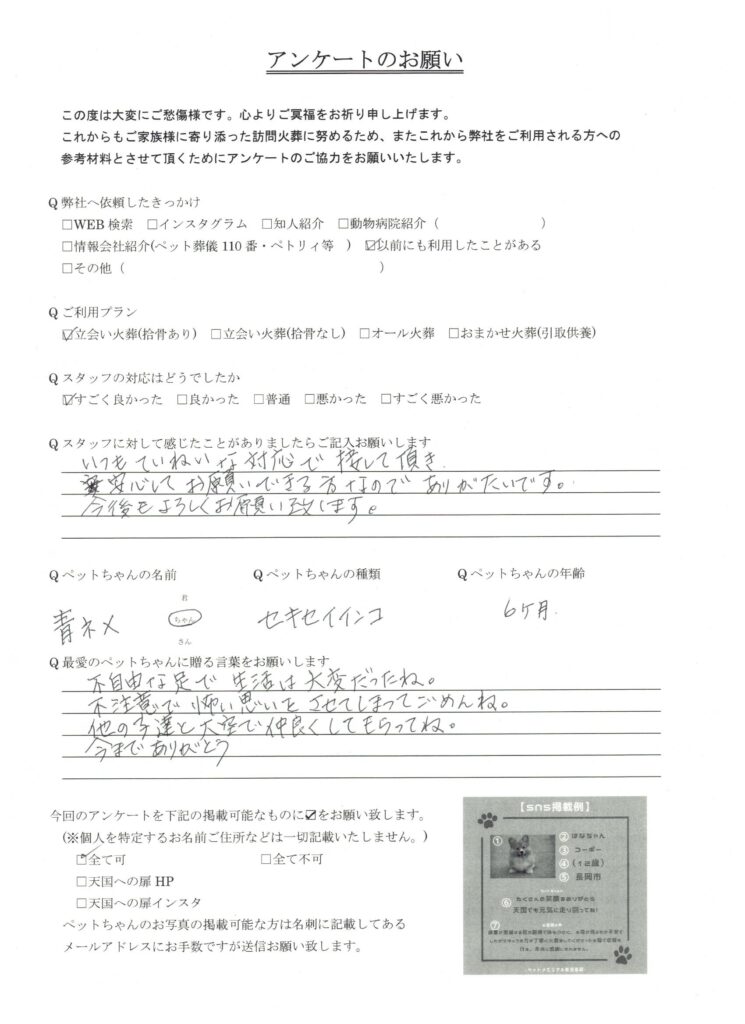 アンケートのお願い
この度は大変にご愁傷様です。心よりご冥福をお祈り申し上げます。
これからもご家族様に寄り添った訪問火葬に努めるため、またこれから弊社をご利用される方への
参考材料とさせて頂くためにアンケートのご協力をお願いいたします。
Q 弊社へ依頼したきっかけ
□WEB 検索 □インスタグラム □知人紹介 □動物病院紹介（ ）
□情報会社紹介(ペット葬儀 110 番・ペトリィ等 ） ☑以前にも利用したことがある
□その他（ ）
Q ご利用プラン
☑立会い火葬(拾骨あり) □立会い火葬(拾骨なし) □オール火葬 □おまかせ火葬(引取供養)
Q スタッフの対応はどうでしたか
☑すごく良かった □良かった □普通 □悪かった □すごく悪かった
Q スタッフに対して感じたことがありましたらご記入お願いします
いつもていねいな対応で接して頂き
安心してお願いできる方なのでありがたいです。
今後もよろしくお願い致します。
Q ペットちゃんの名前 Q ペットちゃんの種類 Q ペットちゃんの年齢
君
青ネメ ちゃん セキセイインコ 6ヶ月.
さん
Q 最愛のペットちゃんに贈る言葉をお願いします
不自由な足で生活は大変だったね。
不注意で怖い思いをさせてしまってごめんね。
他の子達と大空で仲良くしてもらってね。
今までありがとう
今回のアンケートを下記の掲載可能なものに☑をお願い致します。
(※個人を特定するお名前ご住所などは一切記載いたしません。)
☑全て可 □全て不可
□天国への扉 HP
□天国への扉インスタ
ペットちゃんのお写真の掲載可能な方は名刺に記載してある
メールアドレスにお手数ですが送信お願い致します。
【sns掲載例】
① ② はなちゃん
③ コーギー
④ (12歳)
⑤ 長岡市
⑥ たくさんの笑顔をありがとう
天国でも元気に走り回ってね!
⑦